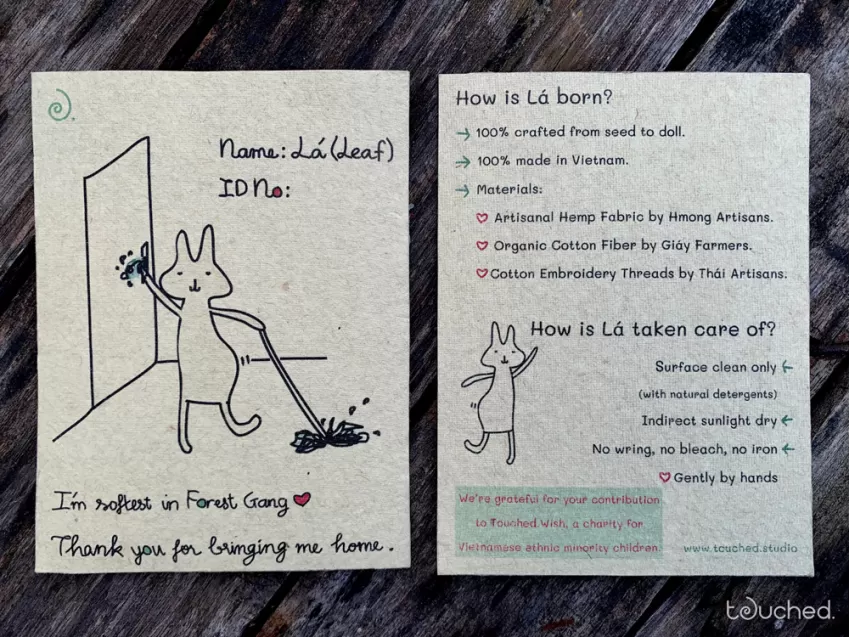 Name: Lá (Leaf)
ID No:
I'm softest in Forest Gang
Thank you for bringing me home.
How is Lá born?
→ 100% crafted from seed to doll.
→ 100% made in Vietnam.
→ Materials:
Artisanal Hemp Fabric by Hmong Artisans.
Organic Cotton Fiber by Giáy Farmers.
Cotton Embroidery Threads by Thái Artisans.
How is Lá taken care of?
Surface clean only ←
(with natural detergents)
Indirect sunlight dry ←
No wring, no bleach, no iron ←
Gently by hands
We're grateful for your contribution
to Touched Wish, a charity for
Vietnamese ethnic minority children
www.touched.studio
touched.